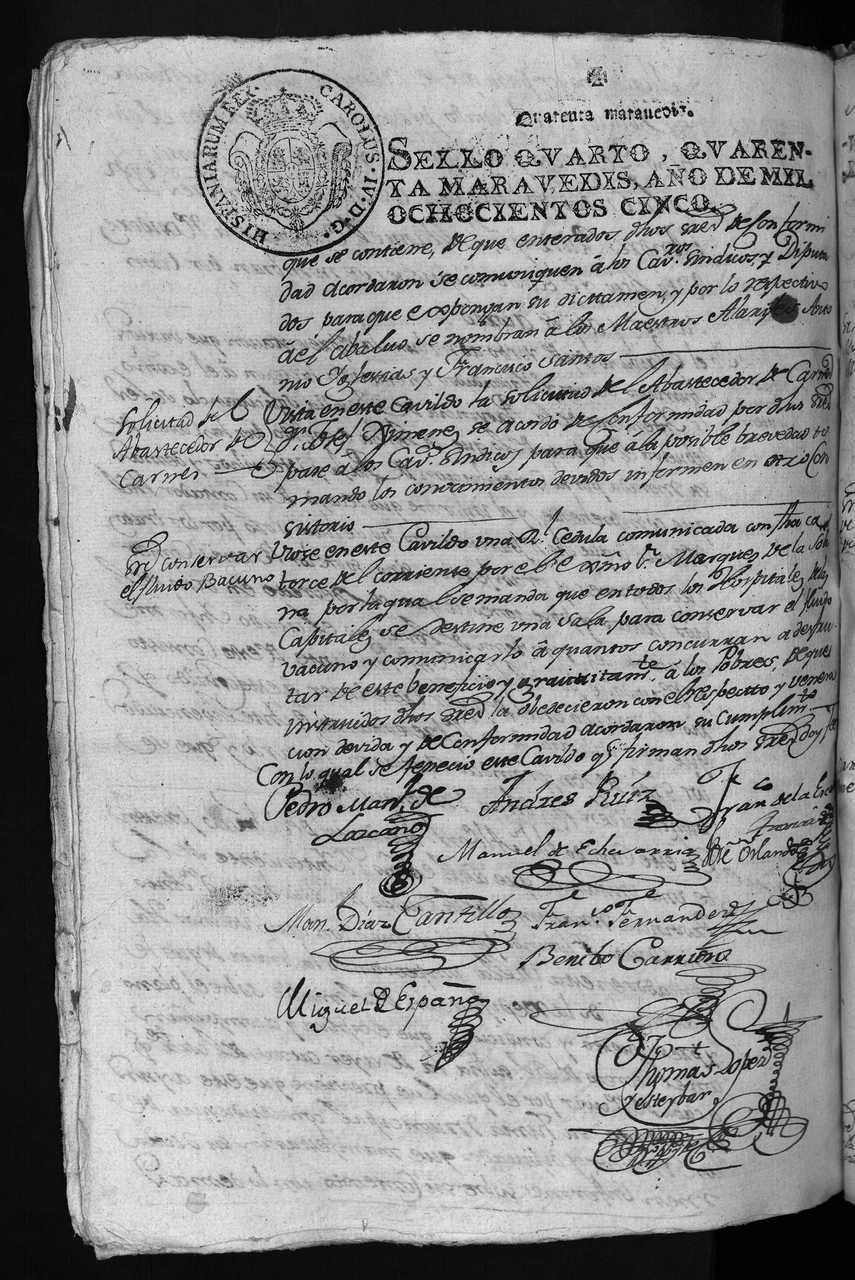 HISPANIARUM REX. CAROLUS · IV · D · G ·
Quarenta maravedis.
SELLO QVARTO, QVAREN-
TA MARAVEDIS, AÑO DE MIL
OCHOCIENTOS CINCO.
que se contiene, de que enterados dhos Sres de Conformi
dad acordaron se comuniquen â los Cavros Sindicos y Diputa
dos para que expongan su dictamen, y por lo respectivo
â el abaluo se nombran â los Maestros Alarifes Anto
nio Yglesias y Francisco Santos
Solicitud de el
Abastecedor de
Carnes
Vista en este Cavildo la solicitud de el Abastecedor de Carnes
Dn. Josef Ximenez se acordó de Conformidad por dhos Sres
pase â los Cavros Sindicos para que â la posible brevedad to
mando los conocimientos devidos informen en otro Con
sistorio
conservar
el fluido Bacuno
Viose en este Cavildo una Rl. Cedula comunicada con fha ca
torce de el corriente por el Exmo Sr. Marques de la Sola
na por la qual se manda que en todos los Hospitales de las
Capitales se destine una sala para conservar el fluido
vacuno y comunicarlo â quantos concurran a disfru
tar de este beneficio y gratuitamte. â los Pobres, de que
instruidos dhos Sres la obedecieron con el respecto y venera
cion devida y de Conformidad acordaron su cumplimto
Con lo qual se fenecio este Cavildo q firman dhos Sres doy fe
Pedro Manl. de
Lozcano
Andres Ruiz
Franco de la
Manuel de Echavarria
Orlando
Man. Diaz Cantillo
Franco Fernandez
Benito Carrion
Miguel de España
Thomas Lopez